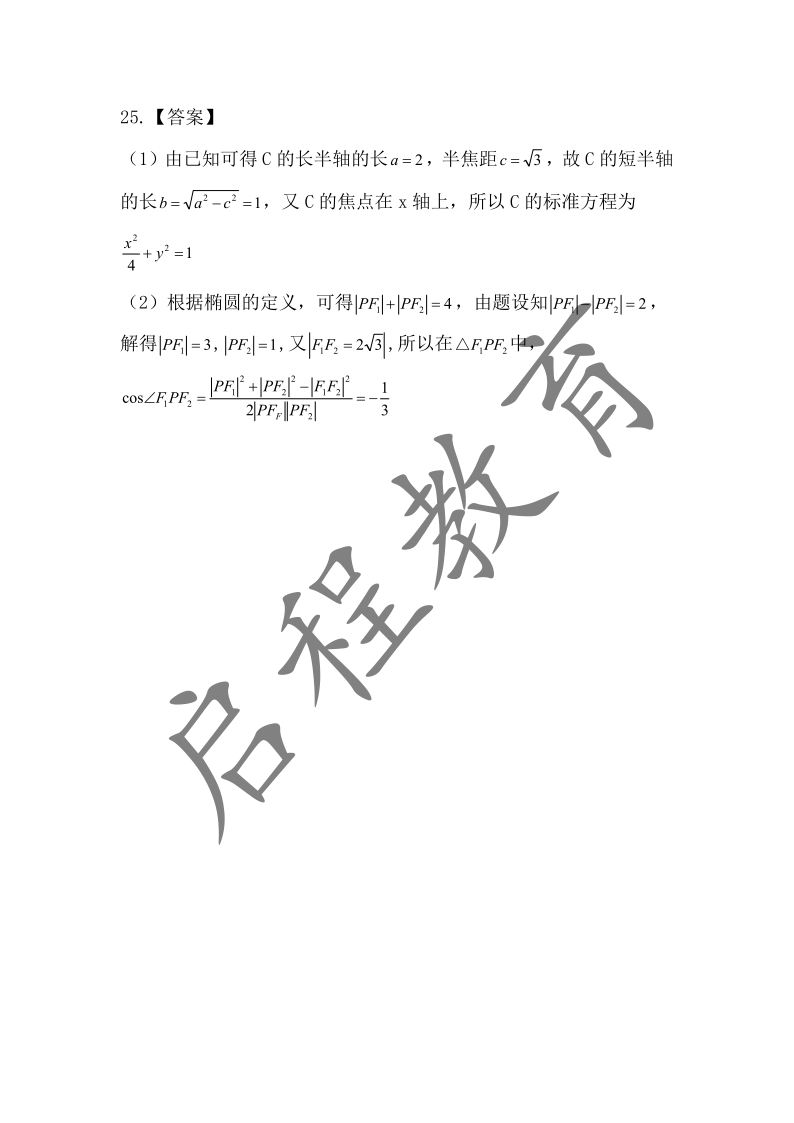 25.【答案】
（1）由已知可得 C 的长半轴的长 a = 2，半焦距 c = √3，故 C 的短半轴
的长 b = √(a² − c²) = 1，又 C 的焦点在 x 轴上，所以 C 的标准方程为
x²/4 + y² = 1
（2）根据椭圆的定义，可得 |PF₁| + |PF₂| = 4，由题设知 |PF₁| − |PF₂| = 2，
解得 |PF₁| = 3, |PF₂| = 1, 又 |F₁F₂| = 2√3, 所以在 △F₁PF₂ 中，
cos∠F₁PF₂ = (|PF₁|² + |PF₂|² − |F₁F₂|²)/(2|PF_F||PF₂|) = −1/3
启程教育